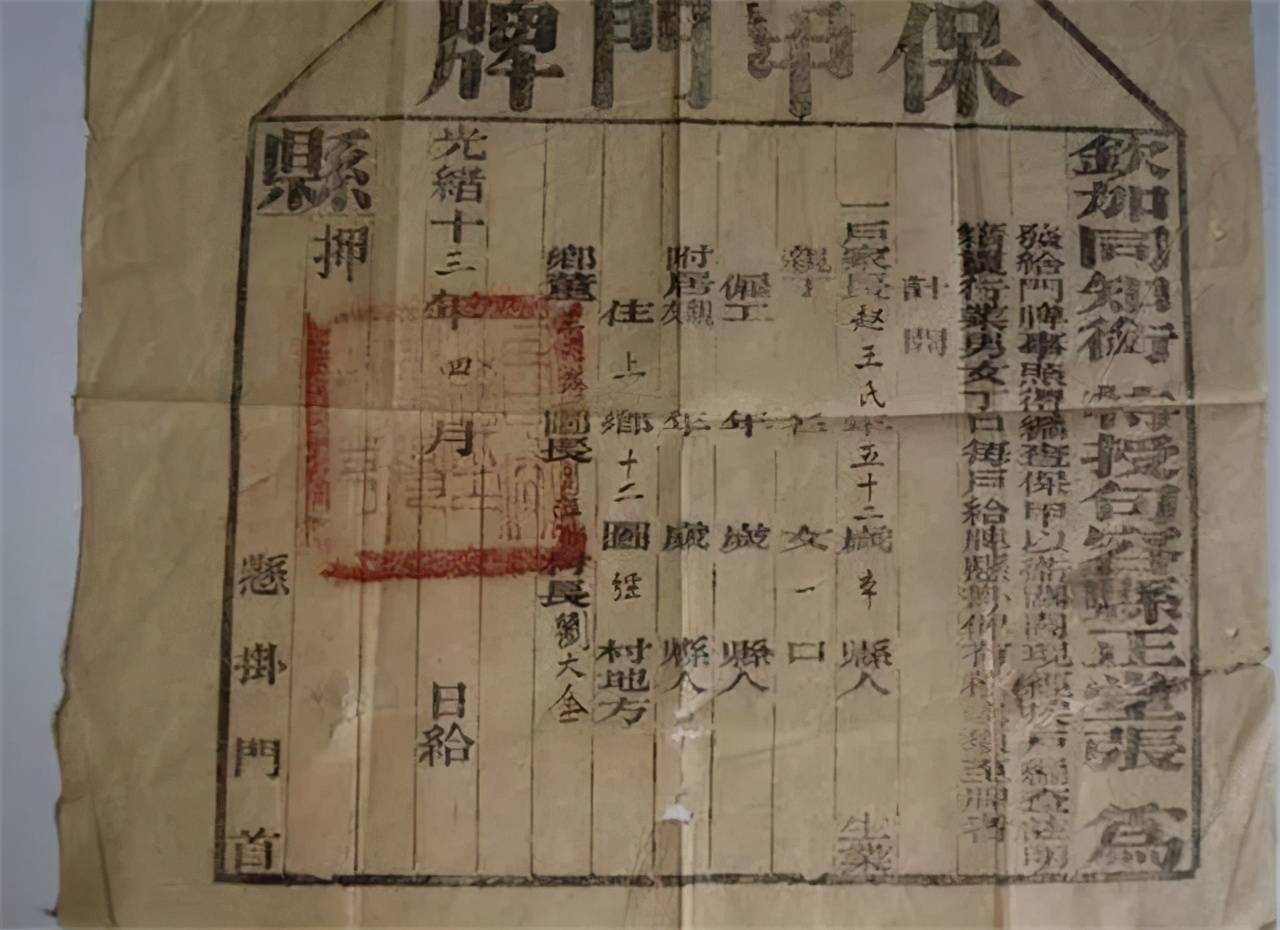 保甲門牌
欽加同知銜特授句容縣正堂張 為
發給門牌事照得編查保甲以衛閭閻現經按戶編查註明
籍貫行業男女丁口每戶給牌懸掛
計開
一戶家長赵王氏年五十二歲本縣人 生業
親丁 女一口
傭工 年 歲 縣人
附居親友 年 歲 縣人
住上鄉十二圖經村地方
鄉董 圖長 村長劉大金
光緒十三年四月 日給
縣 押
懸掛門首